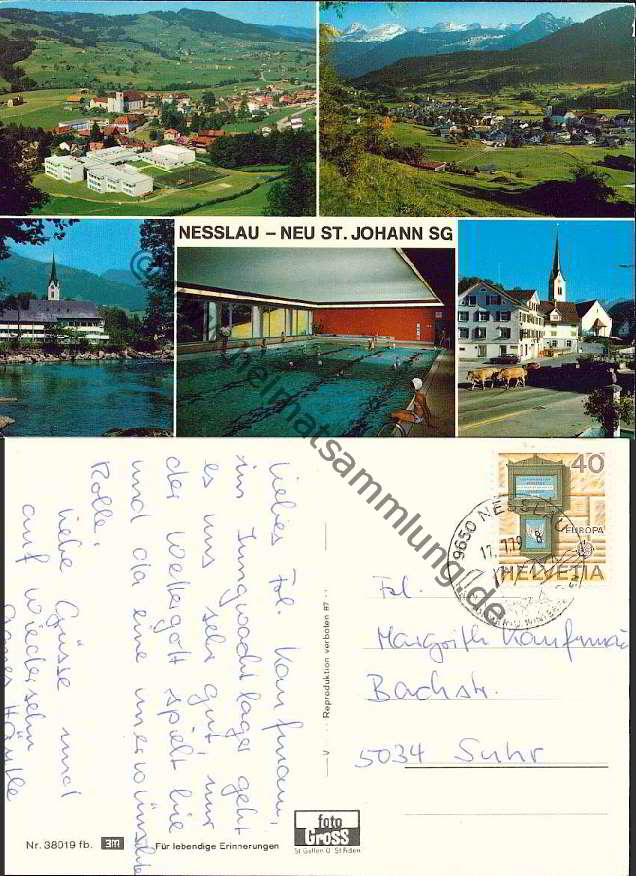 NESSLAU – NEU ST. JOHANN SG
© heimatsammlung.de
Liebes Frl. Kaufmann,
im Jungwachtlager geht
es uns sehr gut nur
der Wettergott spielt hie
und da eine unerwünschte
Rolle.
Liebe Grüsse und
auf Wiedersehn
Reproduktion verboten 87
HELVETIA
40
EUROPA
9650 NESSLAU
17. 7.79
Frl.
Margrith Kaufmann
Bachstr.
5034 Suhr
Nr. 38019 fb. 3M Für lebendige Erinnerungen
foto
GROSS
St. Gallen O St. Fiden